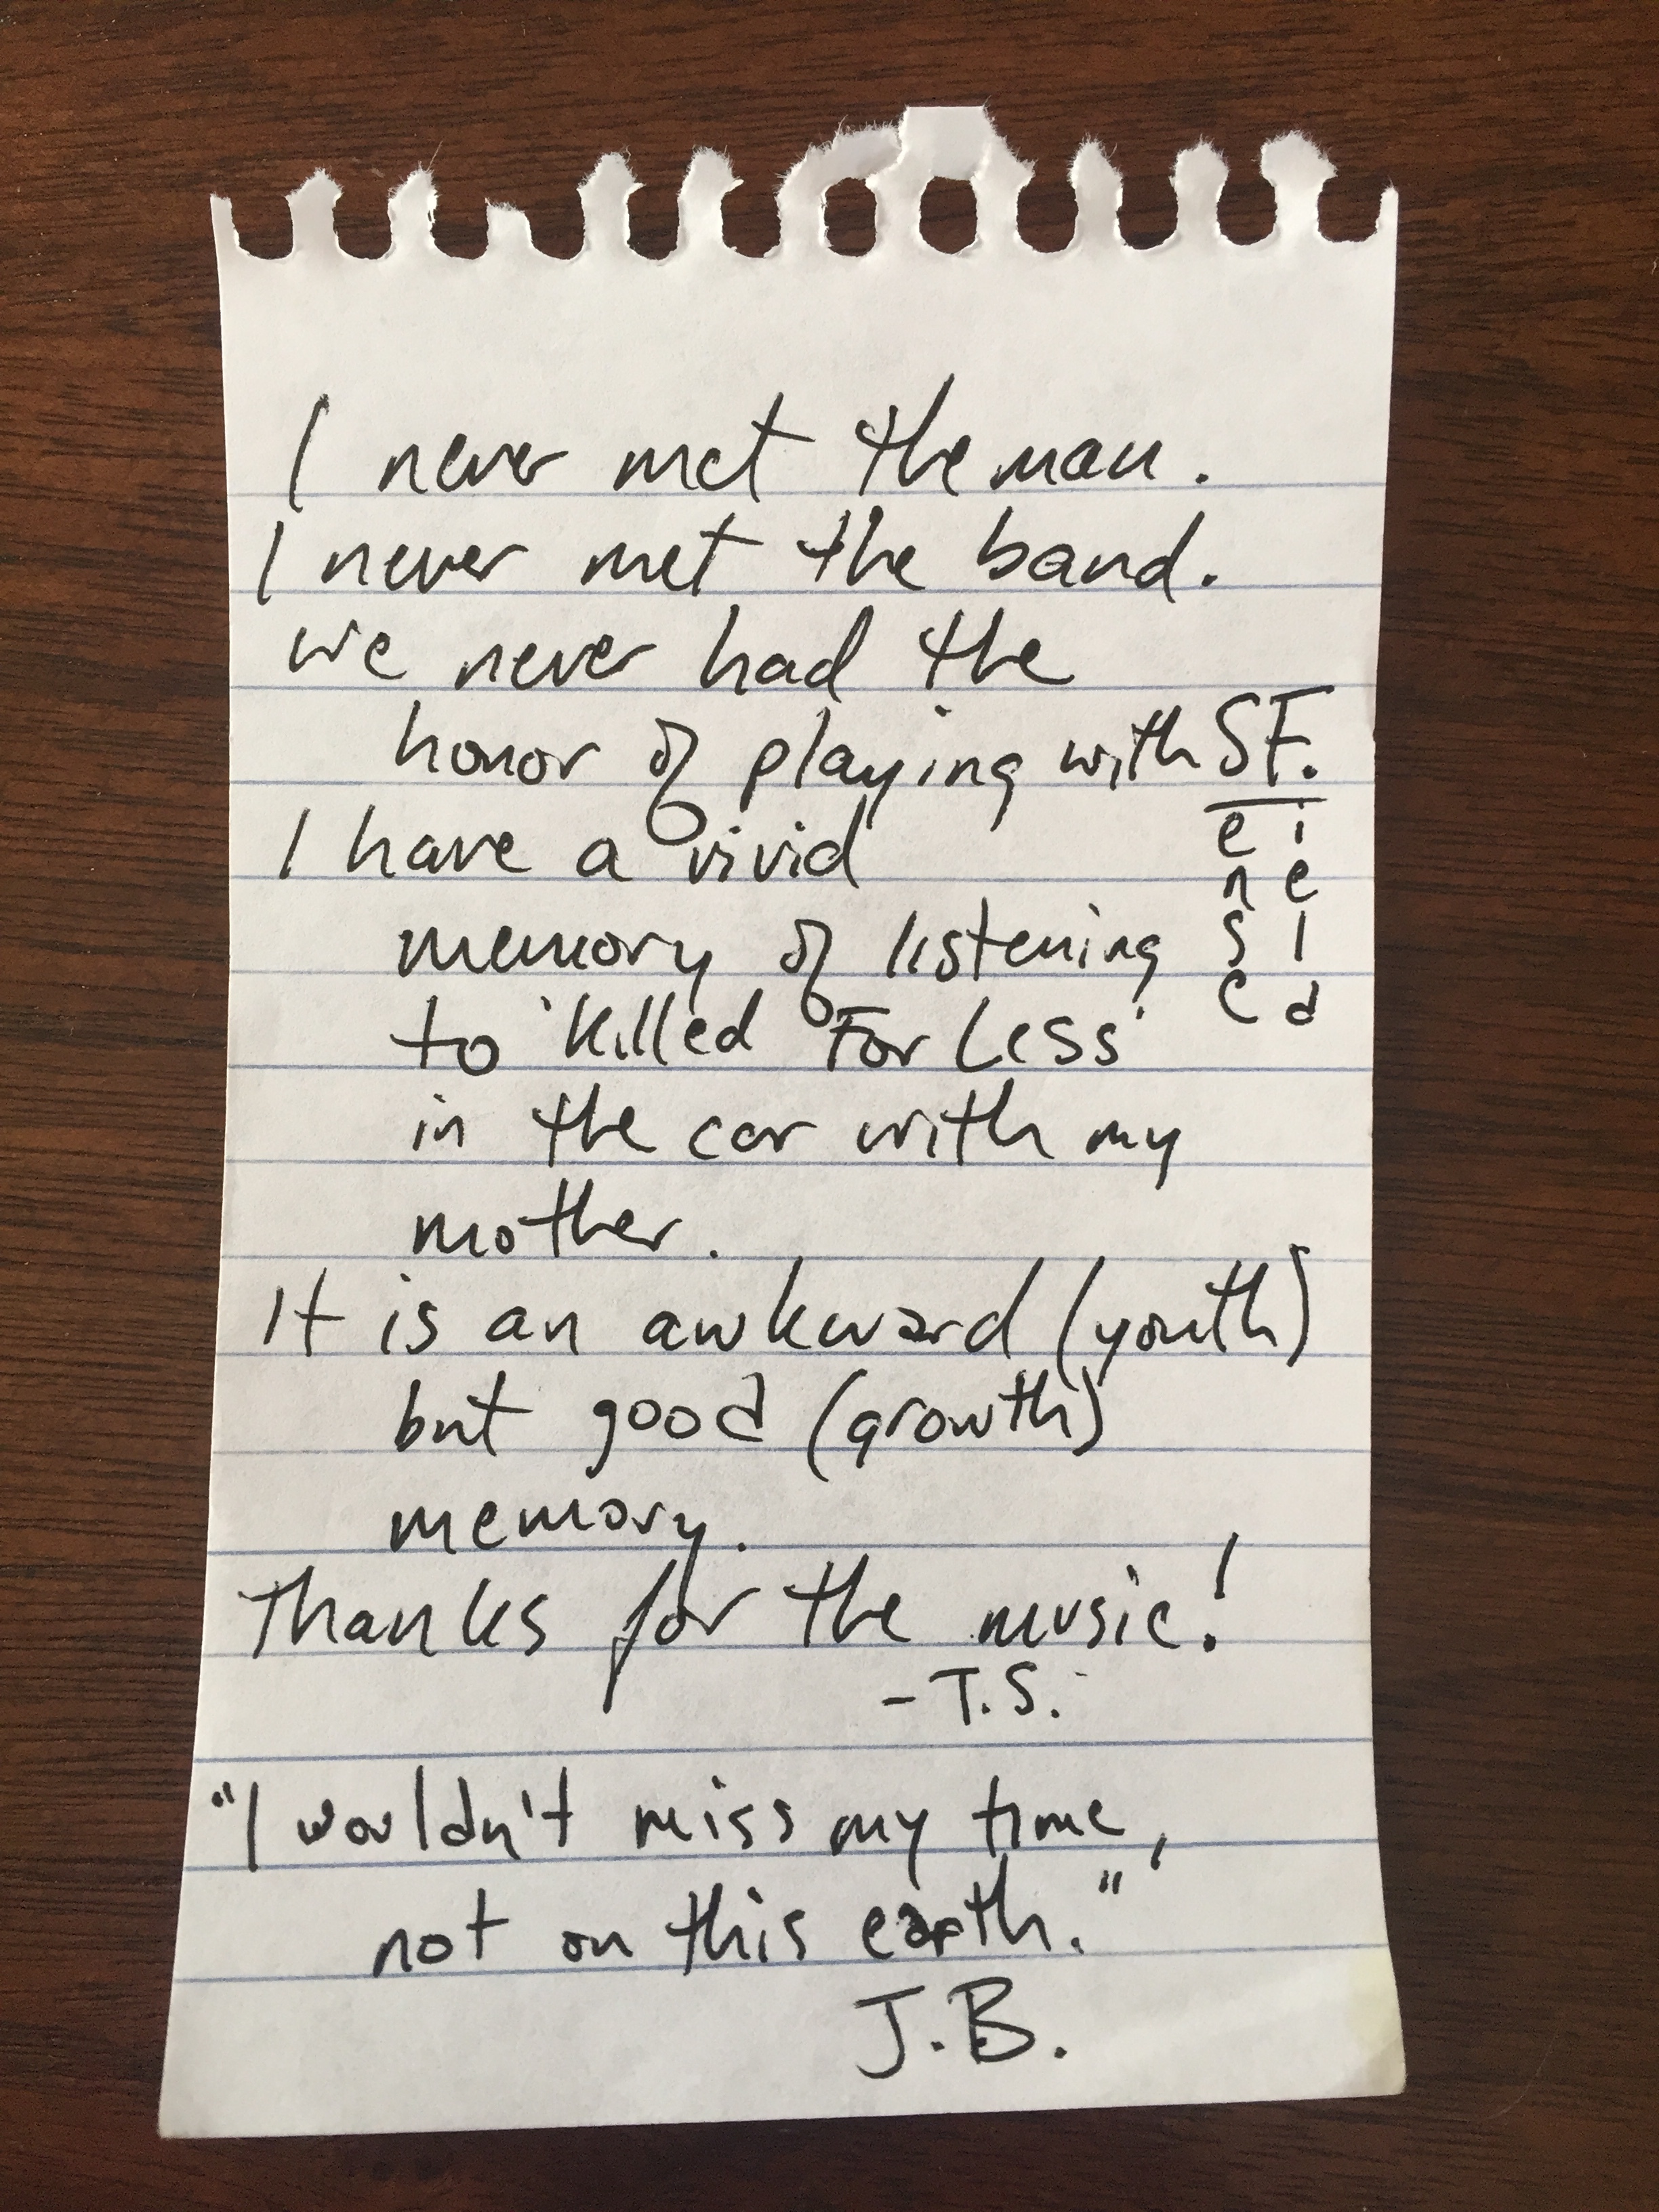 I never met the man.
I never met the band.
we never had the
honor of playing with SF.
e i
n e
s l
e d
I have a vivid
memory of listening
to 'Killed For Less'
in the car with my
mother.
It is an awkward (youth)
but good (growth)
memory.
Thanks for the music!
-T.S.
"I wouldn't miss my time,
not on this earth."
J.B.